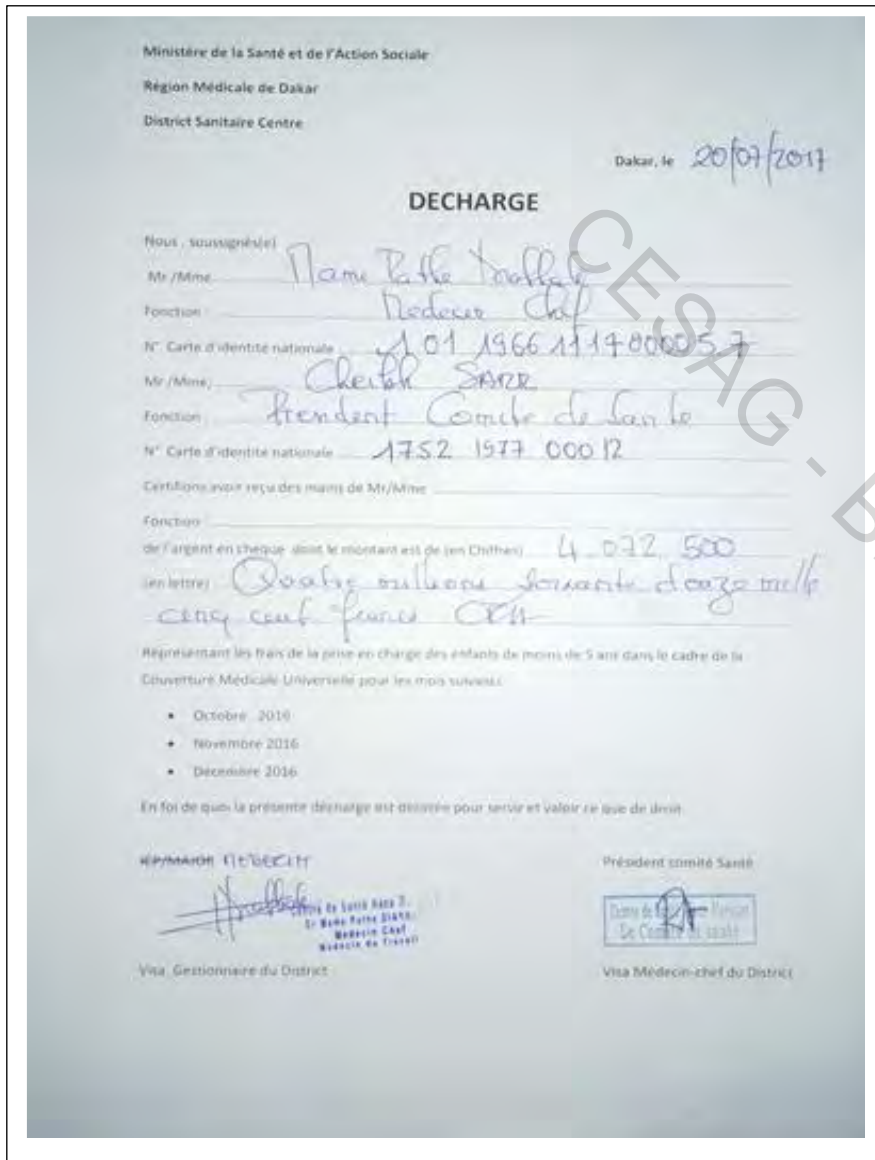 Ministère de la Santé et de l'Action Sociale
Région Médicale de Dakar
District Sanitaire Centre
Dakar, le 20/07/2017
DECHARGE
Nous, soussignés(e)
Mr/Mme Mame Pathe
Fonction Medecin Chef
N° Carte d'identité nationale 1 01 1966 1117 000057
Mr/Mme, Cheikh SARR
Fonction President Comite de Sante
N° Carte d'identité nationale 1752 1977 00012
Certifions avoir reçu des mains de Mr/Mme
Fonction
de l'argent en cheque dont le montant est de (en Chiffres) 4 072 500
(en lettre) Quatre millions soixante douze mille
cinq cent francs CFA
Représentant les frais de la prise en charge des enfants de moins de 5 ans dans le cadre de la
Couverture Médicale Universelle pour les mois suivants
• Octobre 2016
• Novembre 2016
• Décembre 2016
En foi de quoi la présente décharge est délivrée pour servir et valoir ce que de droit
ICP/MAJOR MEDECIN
Président comité Santé
Centre de Santé
Dr Mame Pathe
Medecin Chef
Medecin du Travail
De Comité de santé
Visa Gestionnaire du District
Visa Médecin-chef du District
CESAG - B